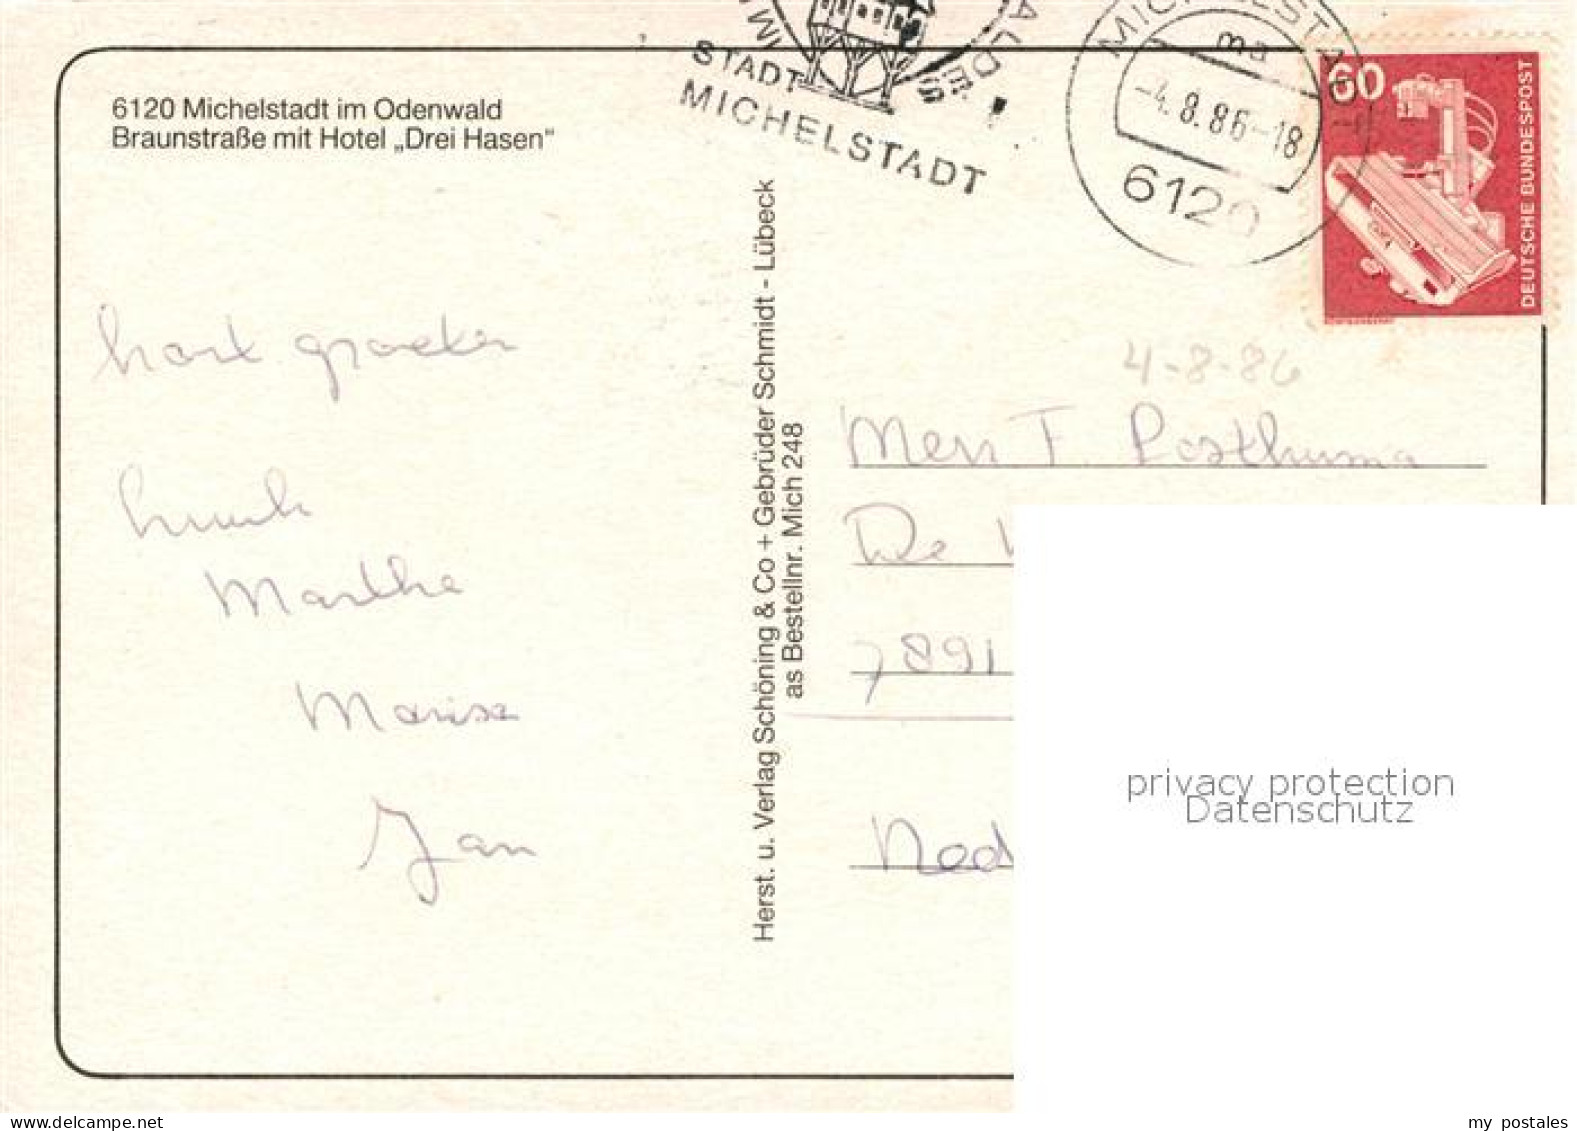 IM
ALDES
STADT
MICHELSTADT
MICHELSTADT 1
ma
-4.8.86-18
6120
60
DEUTSCHE BUNDESPOST
6120 Michelstadt im Odenwald
Braunstraße mit Hotel „Drei Hasen“
hart groeten
Marthe
Jan
Herst. u. Verlag Schöning & Co + Gebrüder Schmidt - Lübeck
as Bestellnr. Mich 248
4-8-86
F. Posthuma
De
7891
Ned
privacy protection
Datenschutz
my postales
Delcampe.net